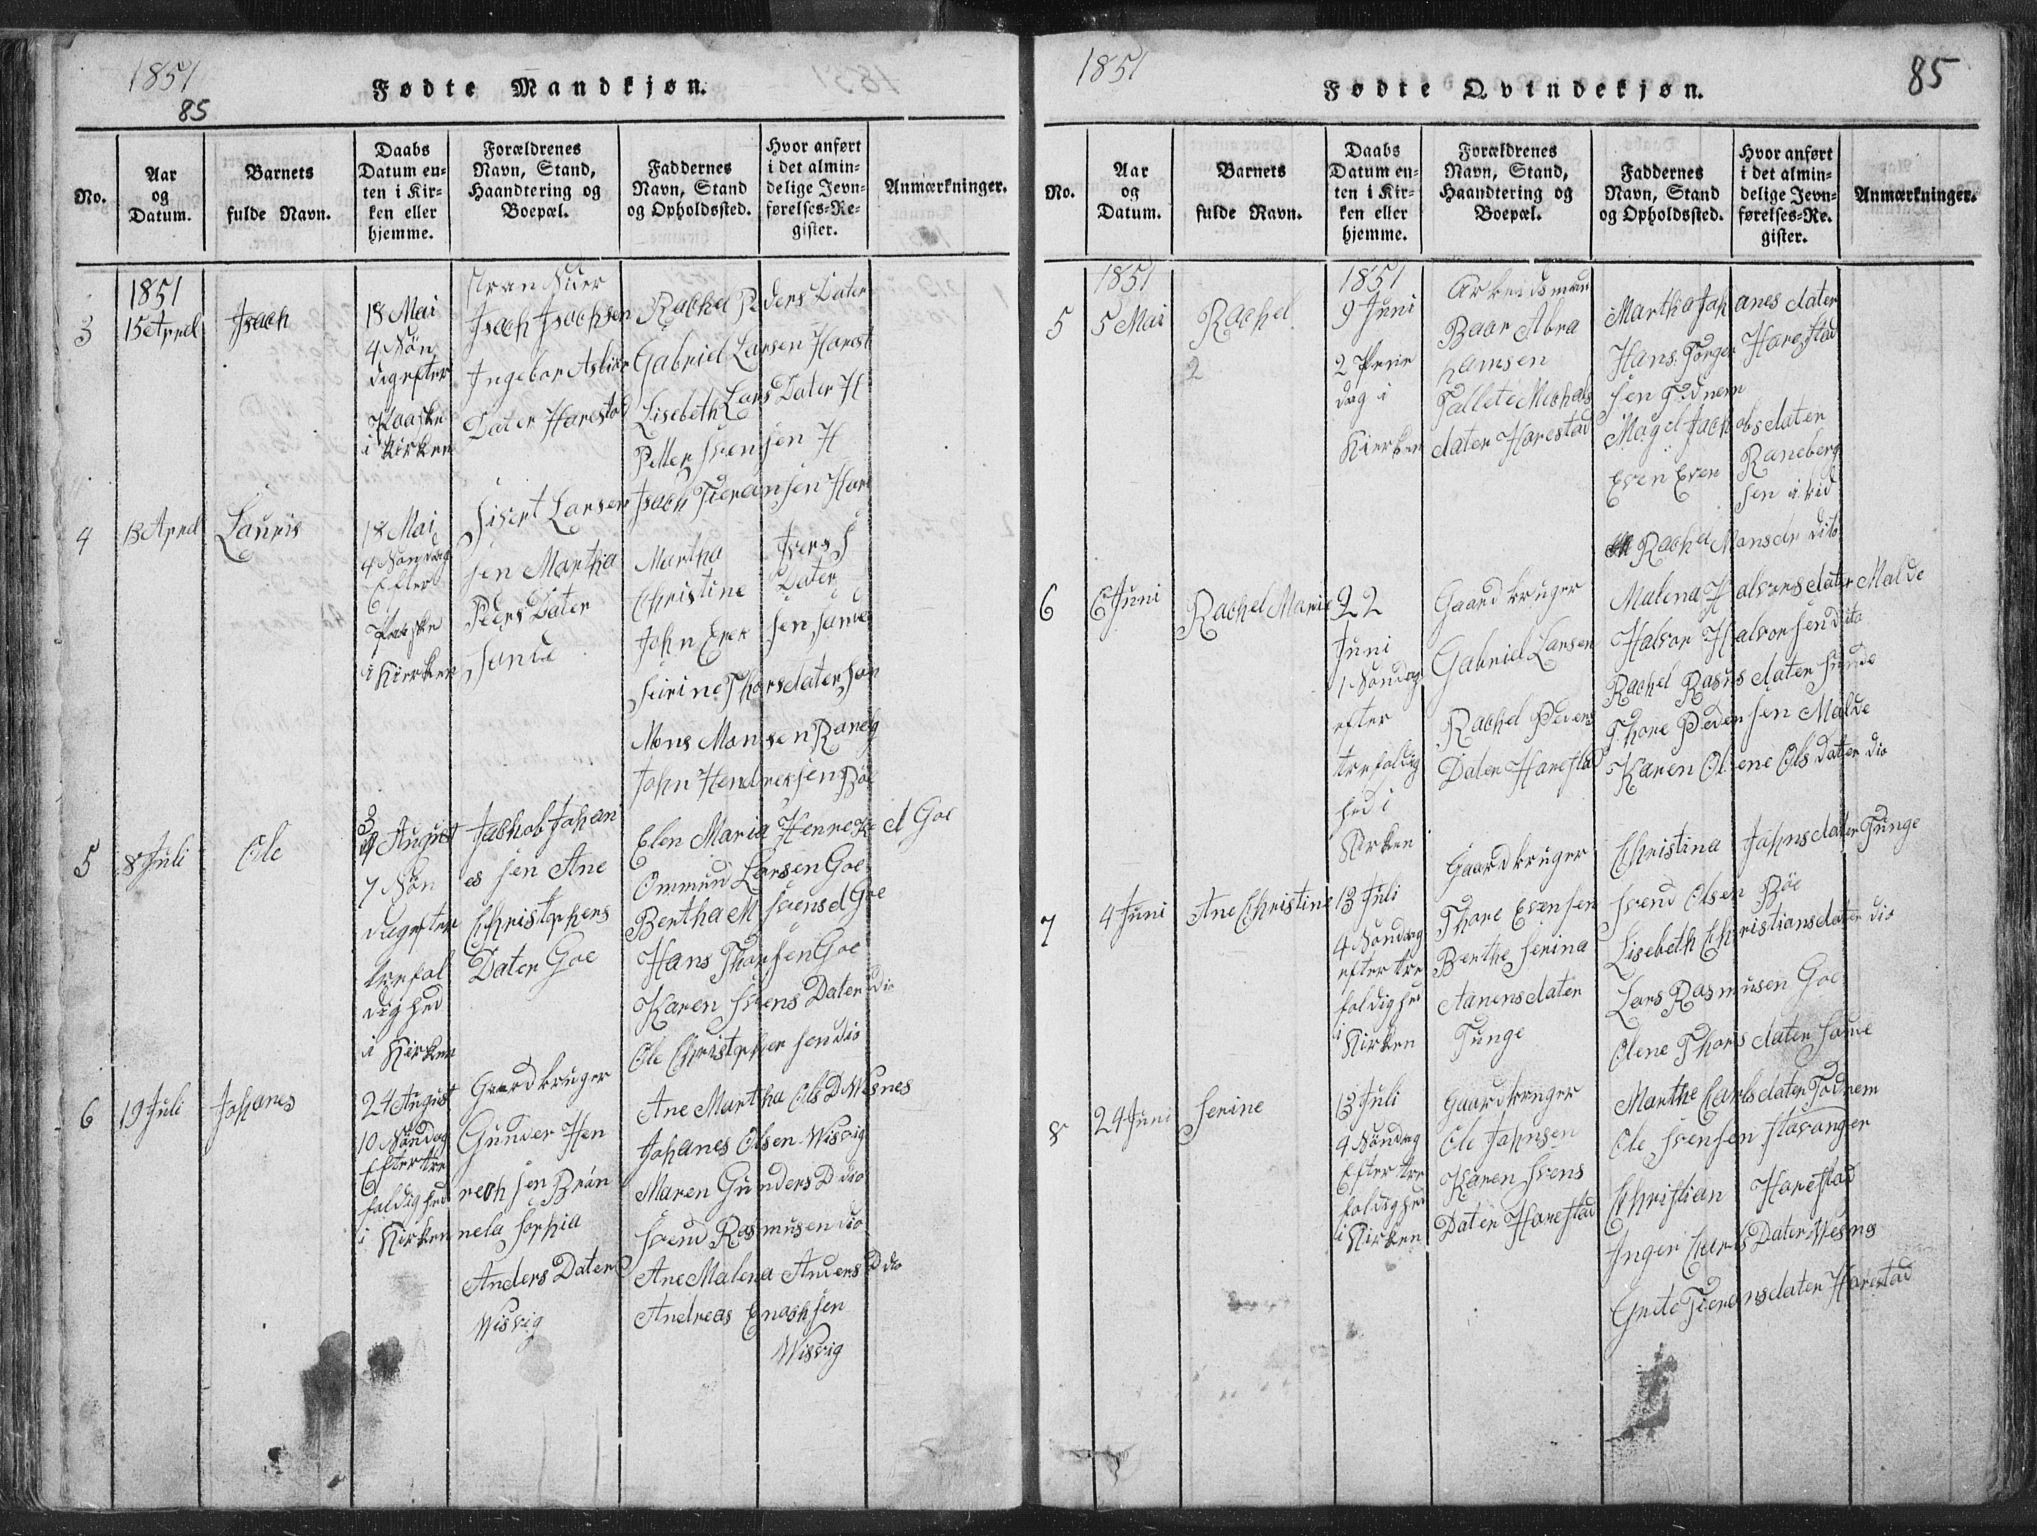 1851
85
Fødte Mandkjøn.
No.
Aar
og
Datum.
Barnets
fulde Navn.
Daabs
Datum en=
ten i Kir=
ken eller
hjemme.
Forældrenes
Navn, Stand,
Haandtering og
Boepæl.
Faddernes
Navn, Stand
og Opholdssted.
Hvor anført
i det almin=
delige Jevn=
førelses=Re=
gister.
Anmærkninger.
1851
3
15 Aprel
Isach
18 Mai
4 Søn
dag efter
Paaske
i Kirken
Isach Isachsen
Ingebor
Dater Harestad
Rachel Peders Dater
Gabriel Larsen Harest
Lisebeth Lars Dater H
Petter Svensen H
Isach Tieransen Hare
4
13 Aprel
Lauris
18 Mai
4 Søndag
Efter
Paaske
i Kierken
Sivert Larsen
sen Martha
Peers Dater
Sande
Martha Ivers S
Christine Dater
John Erek sen Sande
Seirine Thorsdater San
Mons Monsen Raneg
John Hendreksen Bøe
5
8 Juli
Ole
3
August
7 Søn
dag efter
trefol
dighed
i Kirken
Jachob Johan
es sen Ane
Christophers
Dater Goe
Elen Maria Henrek d Goe
Ommun Larsen Goe
Bertha M Svens d Goe
Hans Thorsen Goe
Karen Svens Dater dio
Ole Christopher sen dio
6
19 Juli
Johanes
24 August
10 Søndag
Efter tre
foldighed
i Kirken
Gaardbruger
Gunder Hen
rech sen Brøn
nela Sophia
Anders Dater
Wisvig
Ane Martha Ols D Wesnes
Johanes Olsen Wisvig
Maren Gunders D dio
Svend Rasmusen dio
Ane Malena Anders D dio
Andreas Enochsen
Wisvig
1851
85
Fødte Qvindekjøn.
No.
Aar
og
Datum.
Barnets
fulde Navn.
Daabs
Datum en=
ten i Kir=
ken eller
hjemme.
Forældrenes
Navn, Stand,
Haandtering og
Boepæl.
Faddernes
Navn, Stand
og Opholdssted.
Hvor anført
i det almin=
delige Jevn=
førelses=Re.
gister.
Anmærkninger.
1851
5
5 Mai
Rachel
2
1851
9 Juni
2
dag i
Kierken
Arbeidsman
Baar Abra
hamsen
Tallete Michals
dater Harestad
Martha Johanes dater
Hans Torger Harestad
sen Todnem
Magel Jachobs dater
Even Even Raneberg
sen
Rachel Mons dr dito
6
6 Juni
Rachel Marie
22
Juni
1 Søndag
efter
trefoldig
hed i
Kirken
Gaardbruger
Gabriel Larsen
Rachel Peders
Dater Harestad
Malena Halvors dater Malde
Halvor Halvorsen dito
Rachel Rasus dater Sunde
Thore Pedersen Malde
Karen Olene Ols dater dio
7
4 Juni
Ane Christine
13 Juli
4 Søndag
efter tre
foldighed
i
Kirken
Gaardbruger
Thore Evensen
Berthe Serina
Aanensdater
Tunge
Christina Johns dater Tunge
Svend Olsen Bøe
Lisebeth Christiansdater dio
Lars Rasmusen Goe
Olene Thors dater Sande
8
24 Juni
Serine
13 Juli
4 Søndag
Efter tre
foldighed
i Kirken
Gaardbruger
Ole Johnsen
Karen Svens
Dater Harestad
Marthe Carls dater Todnem
Ole Svensen Stavanger
Christian Harestad
Inger Carls Dater Wesnes
Grete Tieransdater Harestad